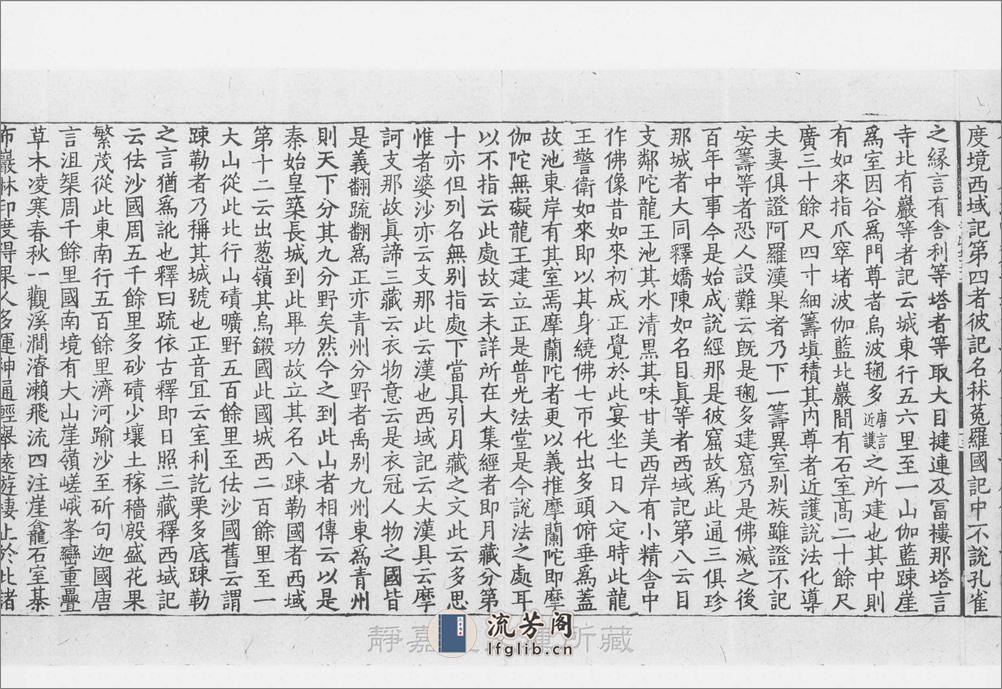 度境西域記第四者彼記名秣菟羅國記中不說孔雀
之緣言有舍利等塔者等取大目揵連及富樓那塔言
寺北有巖等者記云城東行五六里至一山伽藍踈崖
爲室因谷爲門尊者烏波毱多唐言近護之所建也其中則
有如來指爪窣堵波伽藍北巖間有石室高二十餘尺
廣三十餘尺四寸細籌填積其內尊者近護說法化導
夫妻俱證阿羅漢果者乃下一籌異室別族雖證不記
安籌等者恐人設難云旣是毱多建窟乃是佛滅之後
百年中事今是始成說經那是彼窟故爲此通三俱珍
那城者大同釋嬌陳如名目眞等者西域記第八云目
支鄰陀龍王池其水清黑其味甘美西岸有小精舍中
作佛像昔如來初成正覺於此宴坐七日入定時此龍
王警衛如來即以其身繞佛七帀化出多頭俯垂爲蓋
故池東岸有其室焉摩蘭陀者更以義推摩蘭陀即摩
伽陀無礙龍王建立正是普光法堂是今說法之處耳
以不指云此處故云未詳所在大集經者即月藏分第
十亦但列名無別指處下當具引月藏之文此云多思
惟者婆沙亦云支那此云漢也西域記云大漢具云摩
訶支那故眞諦三藏云衣物意云是衣冠人物之國皆
是義翻疏翻爲正亦青州分野者禹別九州東爲青州
則天下分其九分野矣然今之到此山者相傳云以是
秦始皇築長城到此畢功故立其名八踈勒國者西域
第十二云出蔥嶺其烏鎩國此國城西二百餘里至一
大山從此北行山磧曠野五百餘里至佉沙國舊云謂
踈勒者乃稱其城號也正音宜云室利訖栗多底踈勒
之言猶爲訛也釋曰疏依古釋即日照三藏釋西域記
云佉沙國周五千餘里多砂磧少壤土稼穡殷盛花果
繁茂從此東南行五百餘里濟河踰沙至斫句迦國唐
言沮渠周千餘里國南境有大山崖嶺嵯峨峯巒重疊
草木凌寒春秋一觀溪澗濬瀨飛流四注崖龕石室棊
布巖林印度得果人多運神通輕舉遠遊棲止於此諸
靜嘉 所藏
流芳阁
lfglib.cn